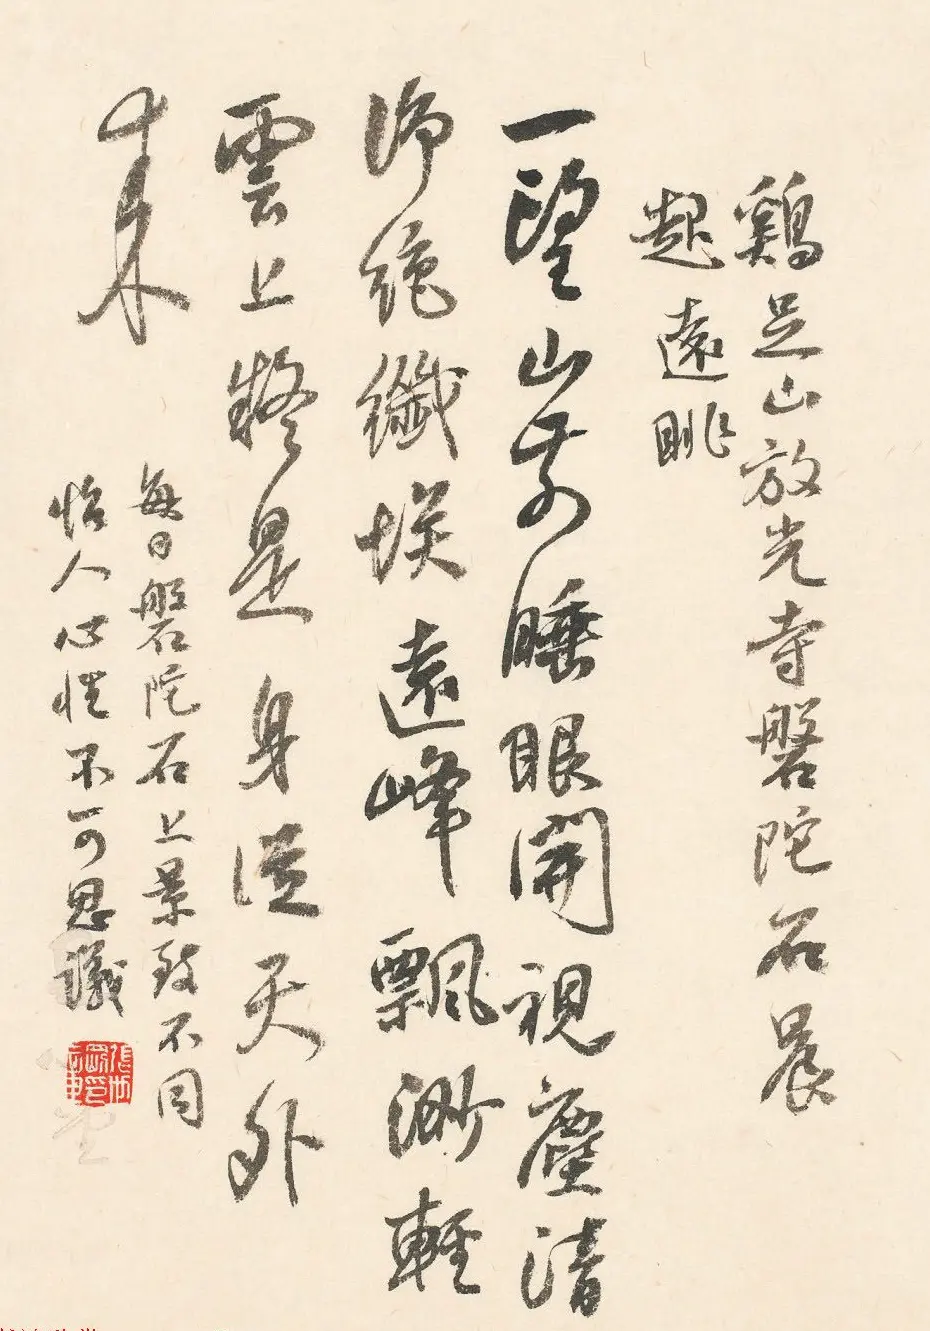 鷄足山放光寺磐陀石晨
起遠眺
一望山前睡眼開視塵清
净絕纖埃遠峰飄渺輕
雲上疑是身從天外
來
每日磐陀石上景致不同
怡人心性不可思議